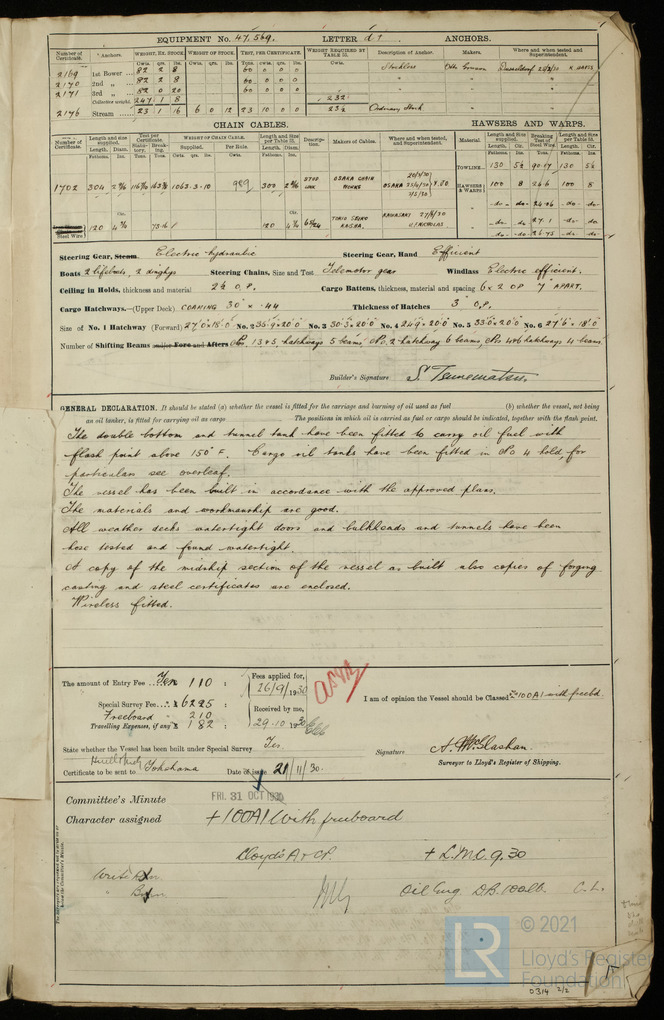 EQUIPMENT No. 47,569. LETTER d † ANCHORS.
Number of Certificate. Anchors. WEIGHT, EX. STOCK WEIGHT OF STOCK. TEST, PER CERTIFICATE. WEIGHT REQUIRED BY TABLE 31. Description of Anchor. Makers. Where and when tested and Superintendent.
Cwts. qrs. lbs. Cwts. qrs. lbs. Tons. cwts. qrs. lbs. Cwts.
2169 1st Bower 82 2 8 60 0 0 0 Stockless Otto Gruson Dusseldorf
2170 2nd „ 82 2 8 60 0 0 0 „ „ „
2171 3rd „ 82 0 20 60 0 0 0 „ „ „
Collective weight 247 1 8 232
2176 Stream 23 1 16 6 0 12 23 10 0 0 23½ Ordinary Stock „ „
CHAIN CABLES. HAWSERS AND WARPS.
Number of Certificate. Length and size supplied. Test per Certificate. WEIGHT OF CHAIN CABLE. Length and Size per Table 31. Description. Makers of Cables. Where and when tested, and Superintendent. Material Length and Size supplied. Breaking Test of Steel Wire. Length and Size per Table 31.
Length. Diam. Statutory. Breaking. Supplied. Per Rule. Length. Diam. Length. Cir. Length. Cir.
Fathoms. Ins. Tons. Tons. Cwts. qrs. lbs. Cwts. Fathoms. Ins. Fathoms. Ins. Tons. Fathoms. Ins.
TOWLINE 130 5½ 90.07 130 5½
1702 304 1063-3-10 989 300 STUD LINK OSAKA CHAIN OSAKA HAWSERS & WARPS 100 8 24.6 100 8
„ -do- -do- 24.26 -do- -do-
Steel Wire 120 4¾ 73.16 120 4¾ 6x24 TOKIO SEIKO KAISHA. KAWASAKI 27/6/30 U.P. NICHOLAS „ -do- -do- 27.1 -do- -do-
„ -do- -do- 26.75 -do- -do-
Steering Gear, Steam Electric hydraulic Steering Gear, Hand Efficient
Boats 2 lifeboats, 2 dinghys Steering Chains, Size and Test Telemotor gear Windlass Electric efficient.
Ceiling in Holds, thickness and material 2½ O.P. Cargo Battens, thickness, material and spacing 6 x 2 OP 9" APART.
Cargo Hatchways.—(Upper Deck) COAMING 30" x .44 Thickness of Hatches 3" O.P.
Size of No. 1 Hatchway (Forward) 27'0" x 18'0" No. 2 35'9" x 20'0" No. 3 30'3" x 20'0" No. 4 24'9" x 20'0" No. 5 33'0" x 20'0" No. 6 27'6" x 18'0"
Number of Shifting Beams and/or Fore and Afters No. 1 3 & 5, hatchways 5 beams, No. 2 hatchway 6 beams, No. 4 & 6 hatchways 4 beams
Builder's Signature S. Tsunematsu.
GENERAL DECLARATION. It should be stated (a) whether the vessel is fitted for the carriage and burning of oil used as fuel (b) whether the vessel, not being
an oil tanker, is fitted for carrying oil as cargo The positions in which oil is carried as fuel or cargo should be indicated, together with the flash point.
The double bottom and tunnel tank have been fitted to carry oil fuel with
flash point above 150° F. Cargo oil tanks have been fitted in No 4 hold, for
particulars see overleaf.
The vessel has been built in accordance with the approved plans.
The materials and workmanship are good.
All weather decks watertight doors and bulkheads and tunnels have been
hose tested and found watertight.
A copy of the midship section of the vessel as built also copies of forging
casting and steel certificates are enclosed.
Wireless fitted.
The amount of Entry Fee .. Yen 110 : Fees applied for,
26/9/1930
Special Survey Fee .. 6225 Received by me,
I am of opinion the Vessel should be Classed +100A1 with freebd
Freeboard 210
Travelling Expenses, if any 182 : 29.10.1930
State whether the Vessel has been built under Special Survey Yes Signature A. McGlashan.
Surveyor to Lloyd's Register of Shipping.
Certificate to be sent to Yokohama Date of issue 21/11/30.
Committee's Minute FRI. 31 OCT 1930
Character assigned + 100A1 With freeboard
Lloyd's A & CP. + L.M.C. 9.30
Write
Oil Eng D.B. 100lb. C.L.
© 2021
LR
Lloyd's Register
Foundation
0314 2/2